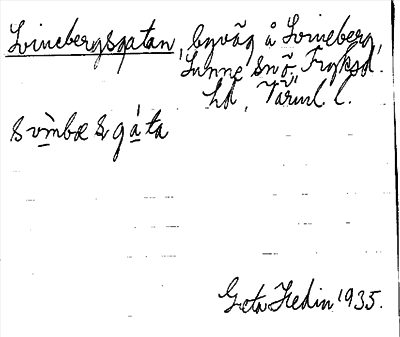 Svinebergsgatan, byväg å Svineberg,
Sunne sn, Fryksd.
hd, Värml. l.
svìmbæsgáta
Greta Hedin 1935.